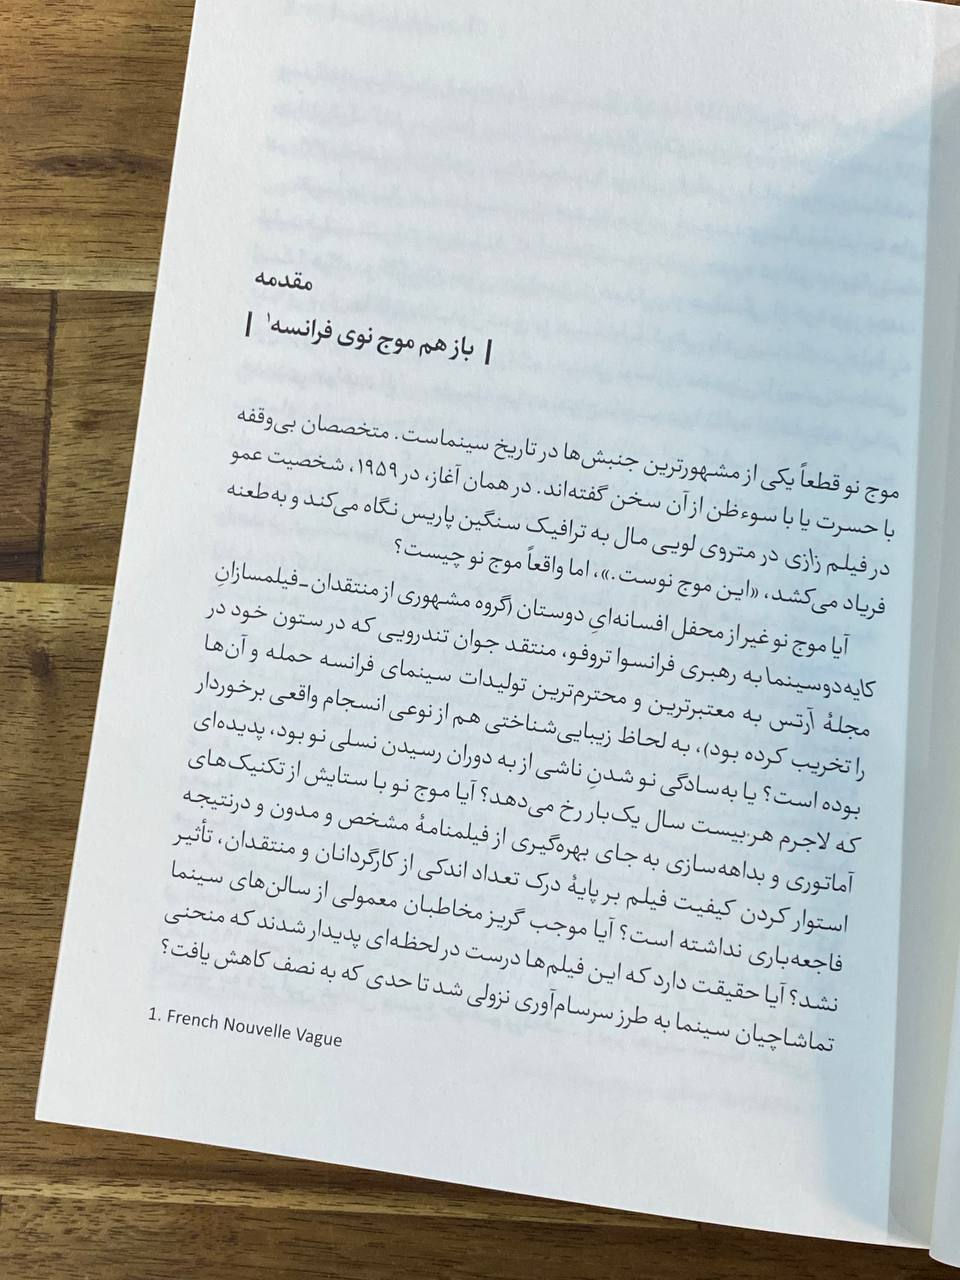 مقدمه
| باز هم موج نوی فرانسه۱ |
موج نو قطعاً یکی از مشهورترین جنبش‌ها در تاریخ سینماست. متخصصان بی‌وقفه
با حسرت یا با سوءظن از آن سخن گفته‌اند. در همان آغاز، در ۱۹۵۹، شخصیت عمو
در فیلم زازی در متروی لویی مال به ترافیک سنگین پاریس نگاه می‌کند و به‌طعنه
فریاد می‌کشد، «این موج نوست.»، اما واقعاً موج نو چیست؟
آیا موج نو غیر از محفل افسانه‌ایِ دوستان (گروه مشهوری از منتقدان ـ فیلمسازانِ
کایه‌دوسینما به رهبری فرانسوا تروفو، منتقد جوان تندرویی که در ستون خود در
مجلهٔ آرتس به معتبرترین و محترم‌ترین تولیدات سینمای فرانسه حمله و آن‌ها
را تخریب کرده بود)، به لحاظ زیبایی‌شناختی هم از نوعی انسجام واقعی برخوردار
بوده است؟ یا به‌سادگی نو شدنِ ناشی از به دوران رسیدن نسلی نو بود، پدیده‌ای
که لاجرم هر بیست سال یک‌بار رخ می‌دهد؟ آیا موج نو با ستایش از تکنیک‌های
آماتوری و بداهه‌سازی به جای بهره‌گیری از فیلمنامهٔ مشخص و مدون و درنتیجه
استوار کردن کیفیت فیلم بر پایهٔ درک تعداد اندکی از کارگردانان و منتقدان، تأثیر
فاجعه‌باری نداشته است؟ آیا موجب گریز مخاطبان معمولی از سالن‌های سینما
نشد؟ آیا حقیقت دارد که این فیلم‌ها درست در لحظه‌ای پدیدار شدند که منحنی
تماشاچیان سینما به طرز سرسام‌آوری نزولی شد تا حدی که به نصف کاهش یافت؟
1. French Nouvelle Vague